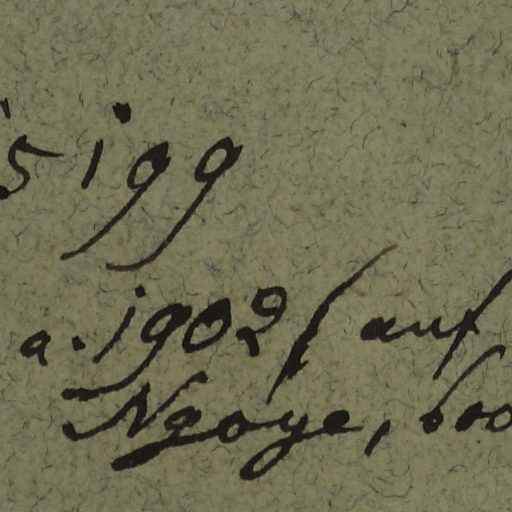 5199
a. 1902 / auf
Ngoye, 600